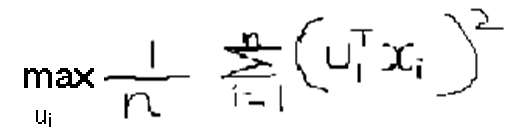 max_{u_i} \frac{1}{n} \sum_{i=1}^{n} (u_1^T x_i)^2